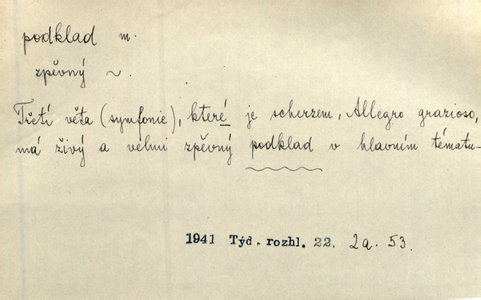 podklad m.
zpěvný ~.
Třetí věta (symfonie), které je scherzem, Allegro grazioso,
má živý a velmi zpěvný podklad v hlavním tématu-
1941 Týd. rozhl. 22. 2a. 53.